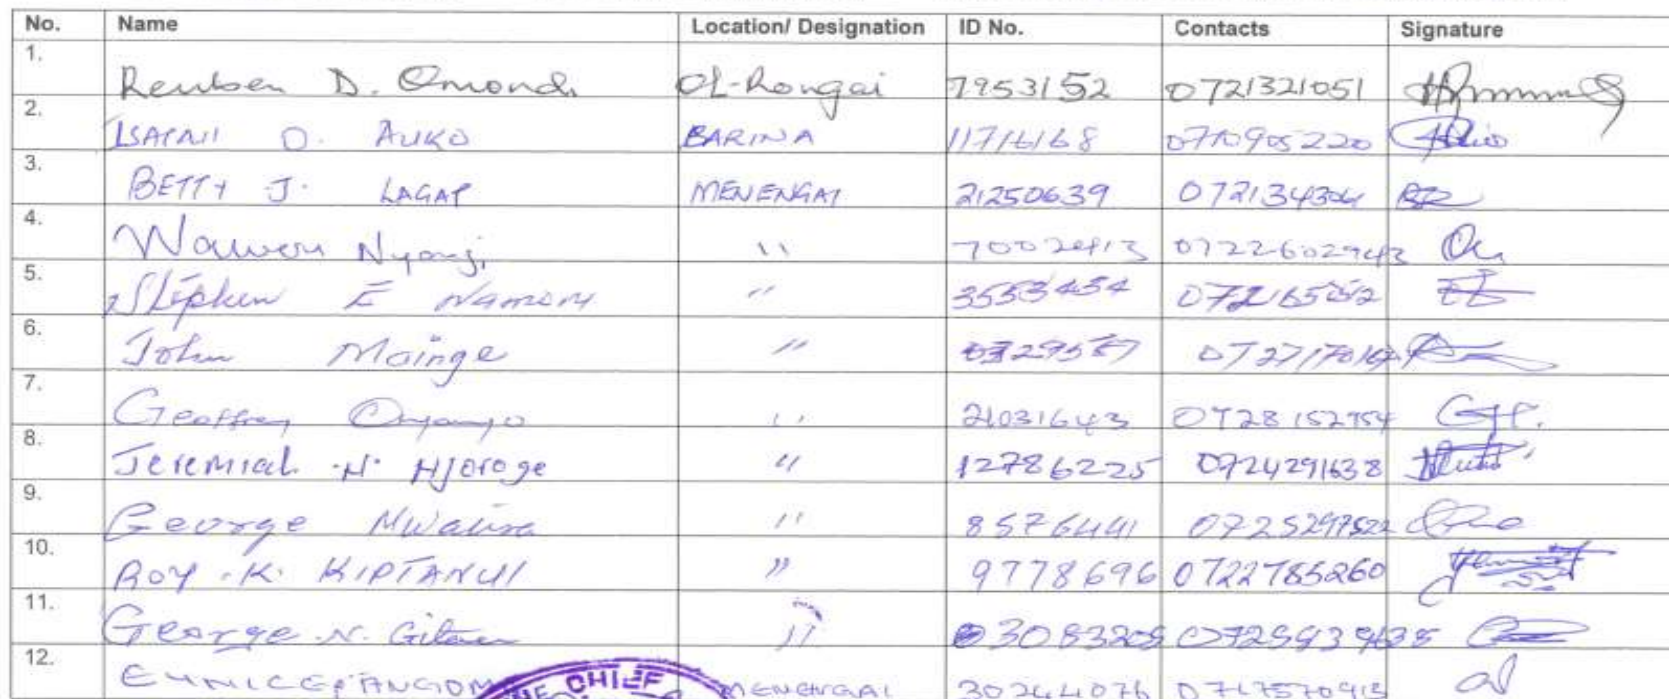 No. Name Location/ Designation ID No. Contacts Signature
1. Reuben D. Omondi Ol-Rongai 7953152 0721321051
2. O. AUKO BARINA 11716168 0710905220
3. BETTY J. LAGAT MENENGAI 21250639
4. Waweru Nyanji " 0722602943
5. Stephen E Namoni " 3553454
6. John Mainge "
7. Geoffrey Onyango " 21031643 0728152754
8. Jeremiah .N. Njoroge " 12786225 0724291638
9. George " 8576441 0725297522
10. ROY .K. KIPTANUI " 9778696 0722785260
11. George .N. " 0725939638
12. EUNICE MENENGAI 30244076 0717570915
THE CHIEF